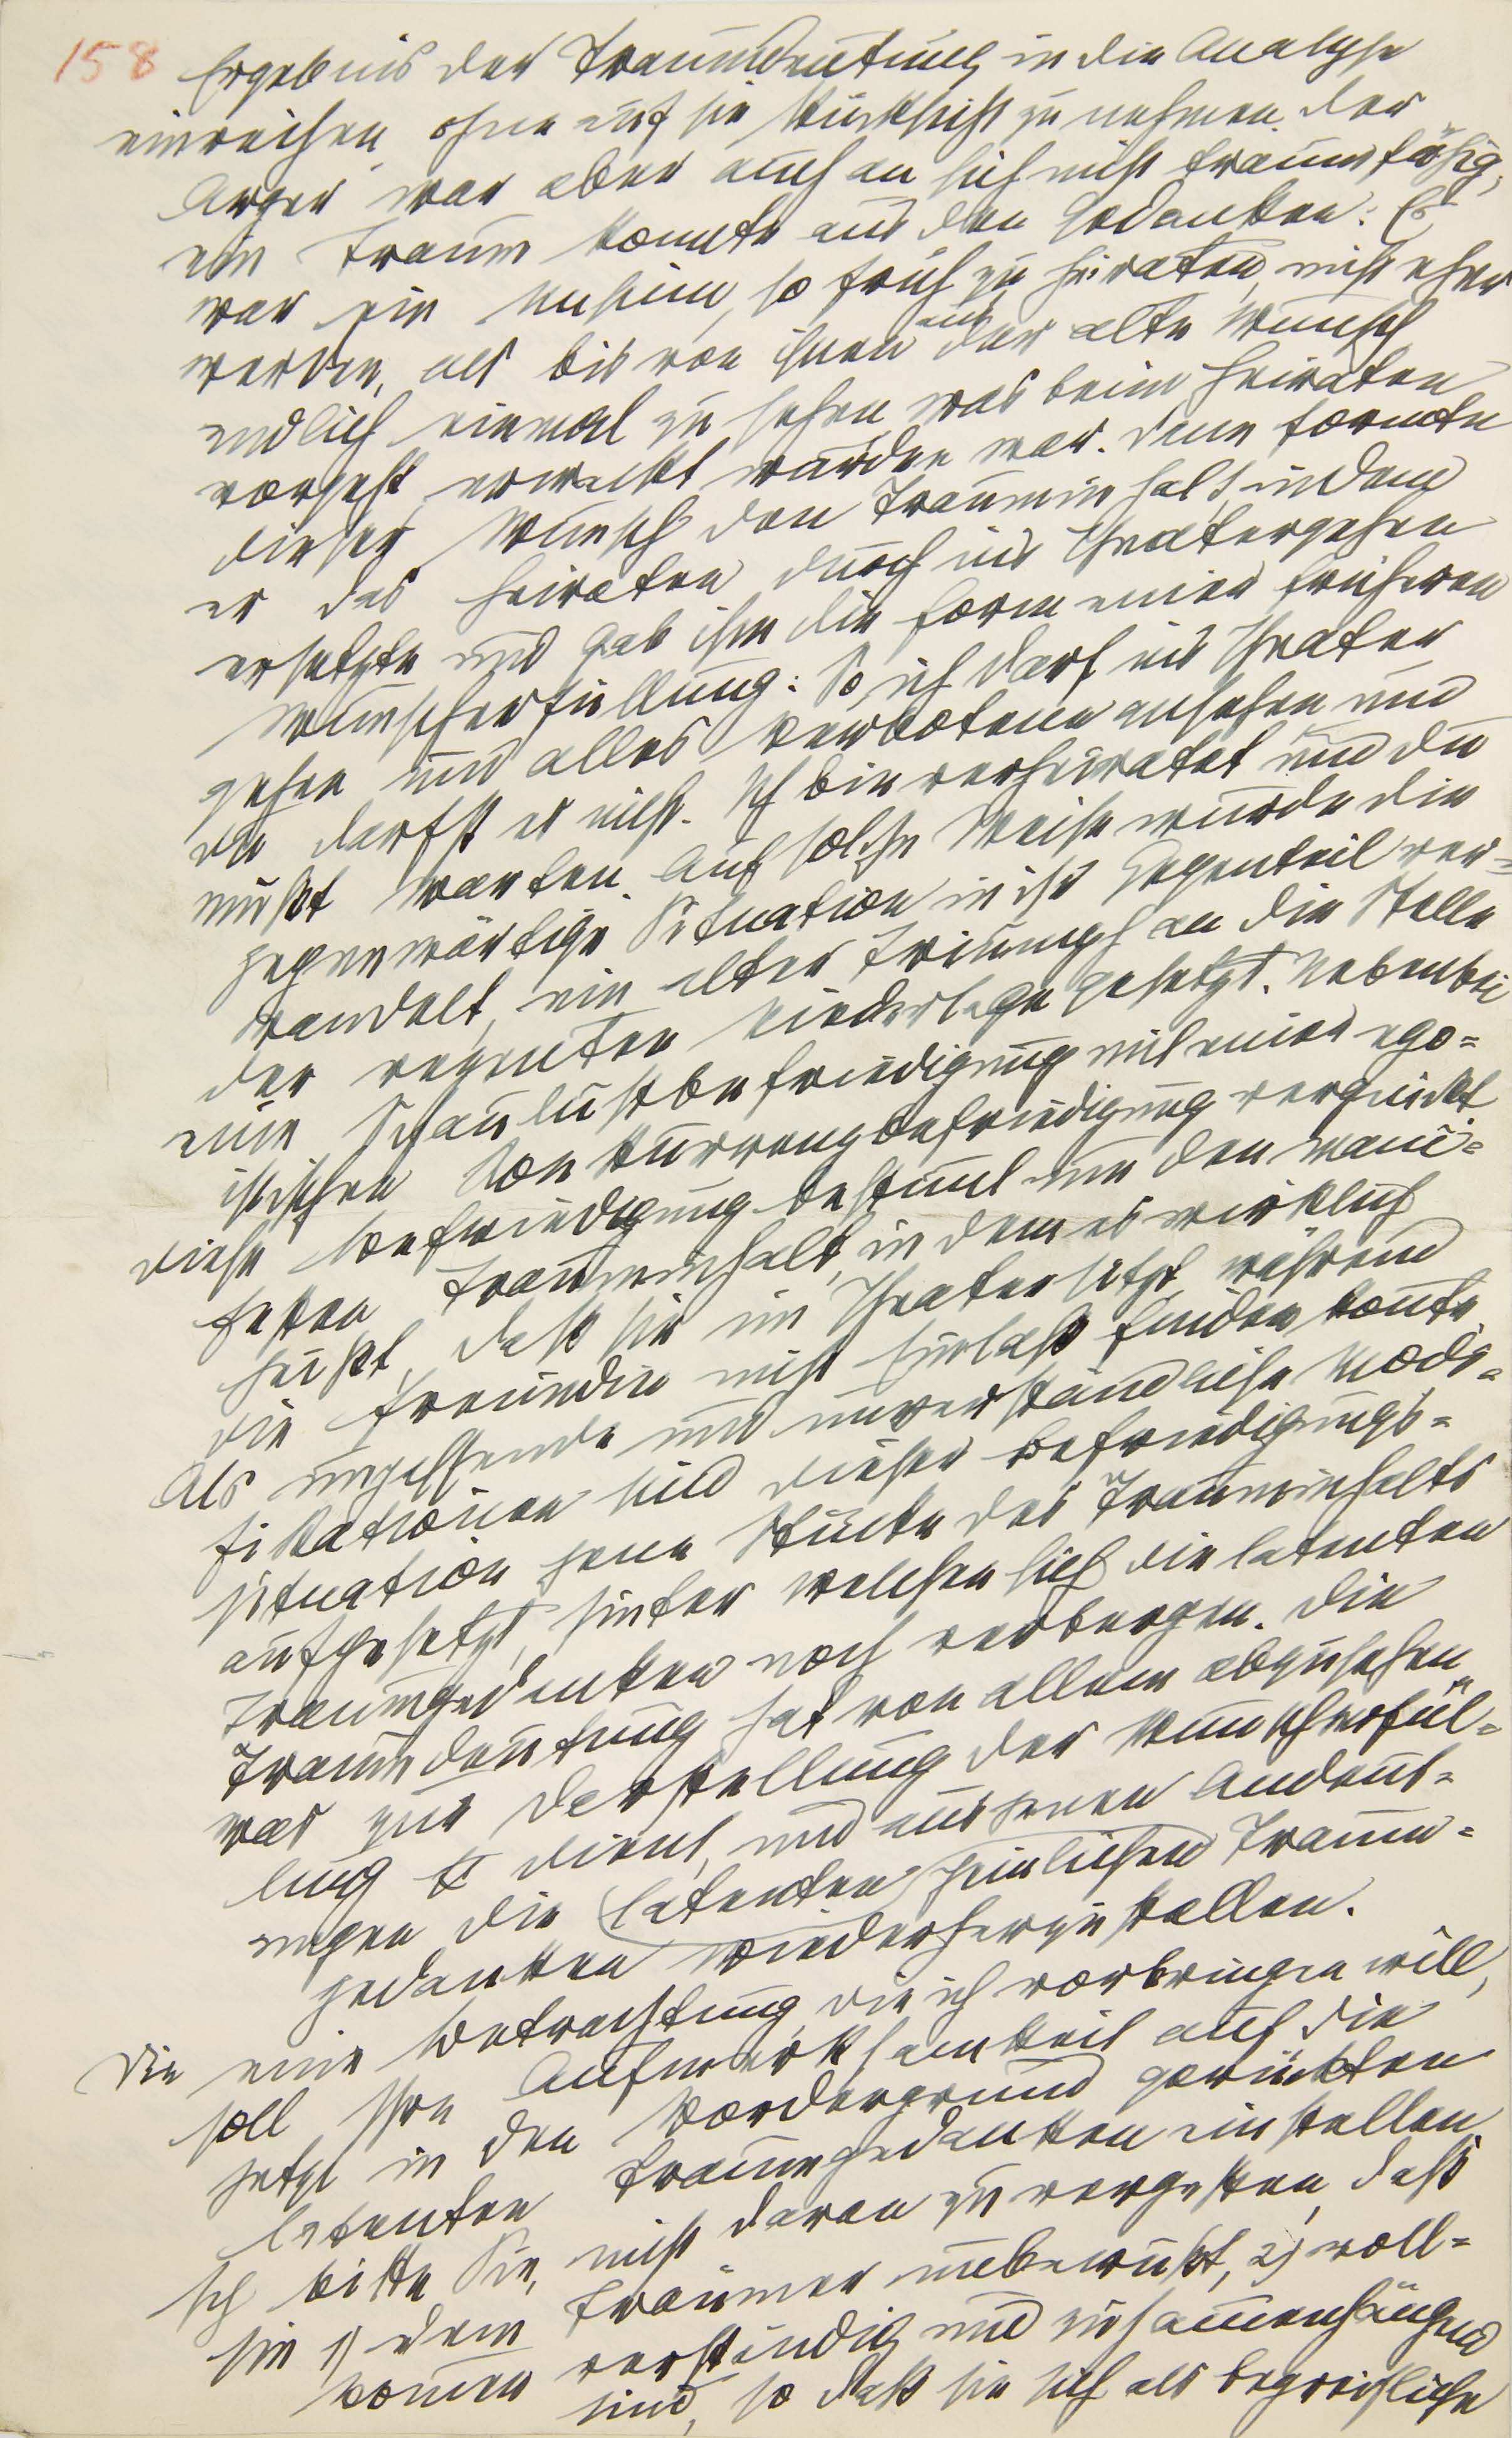 158 Ergebnis der Traumdeutung in die Analyse
einreihen, ohne auf sie Rücksicht zu nehmen. Der
Ärger war aber auch an sich nicht traumfähig,
ein Traum konnte aus den Gedanken: Es
war ein Unsinn, so früh zu heiraten, nicht eher
werden, als bis von ihnen aus der alte Wunsch,
endlich einmal zu sehen, was beim Heiraten
vorgeht, erweckt worden war. Dann formte
dieser Wunsch den Trauminhalt, indem
er das Heiraten durch ins Theatergehen
ersetzte und gab ihm die Form einer früheren
Wunscherfüllung: So, ich darf ins Theater
gehen und alles Verbotene ansehen und
du darfst es nicht. Ich bin verheiratet und du
mußt warten. Auf solche Weise wurde die
gegenwärtige Situation in ihr Gegenteil ver=
wandelt, ein alter Triumph an die Stelle
der rezenten Niederlage gesetzt. Nebenbei
eine Schaulustbefriedigung mit einer ego=
istischen Konkurrenzbefriedigung verquickt.
Diese Befriedigung bestimmt nun den mani=
festen Trauminhalt, in dem es wirklich
heißt, daß sie im Theater sitzt, während
die Freundin nicht Einlaß finden konnte.
Als unpassende und unverständliche Modi=
fikationen sind dieser Befriedigungs=
situation jene Stücke des Trauminhalts
aufgesetzt, hinter welchen sich die latenten
Traumgedanken noch verbergen. Die
Traumdeutung hat von allem abzusehen,
was zur Darstellung der Wunscherfül=
lung dient, und aus jenen Andeut=
ungen die latenten peinlichen Traum=
gedanken wiederherzustellen.
Die eine Betrachtung, die ich vorbringen will,
soll Ihre Aufmerksamkeit auf die
jetzt in den Vordergrund gerückten
latenten Traumgedanken einstellen.
Ich bitte Sie, nicht daran zu vergessen, daß
sie 1) dem Träumer unbewußt, 2) voll=
kommen verständig und zusammenhängend
sind, so daß sie sich als begreifliche